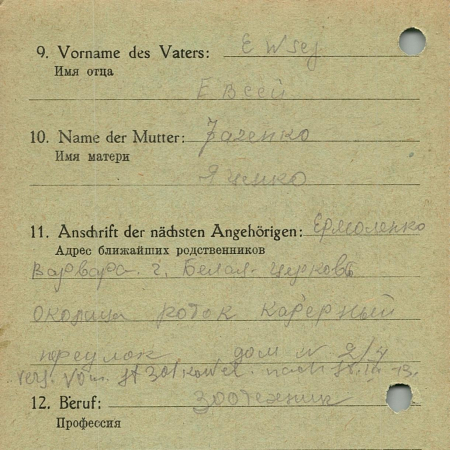 9. Vorname des Vaters: Ewsej
Имя отца
Евсей
10. Name der Mutter: Jaзenko
Имя матери
Яценко
11. Anschrift der nächsten Angehörigen: Ермоленко
Адрес ближайших родственников
Варвара. г. Белая-Церковь
Околица роток Карерный
переулок дом N 2/4
vers. vom nach
12. Beruf: зоотехник
Профессия